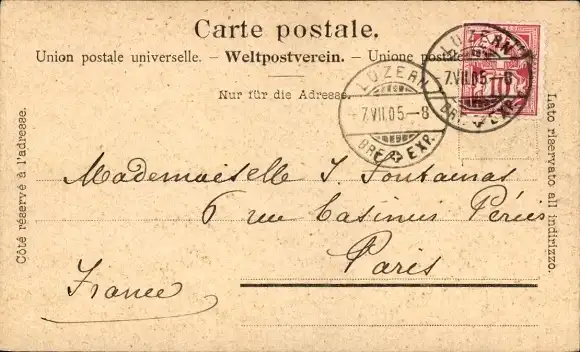 Carte postale.
Union postale universelle. – Weltpostverein. – Unione postale
Nur für die Adresse.
LUZERN
7.VII.05–8
BRF. EXP.
LUZERN
7.VII.05–8
BRF. EXP.
10
Côté réservé à l'adresse.
Lato riservato all indirizzo.
Mademoiselle J. Fontainas
6 rue Casimir Périer
Paris
France